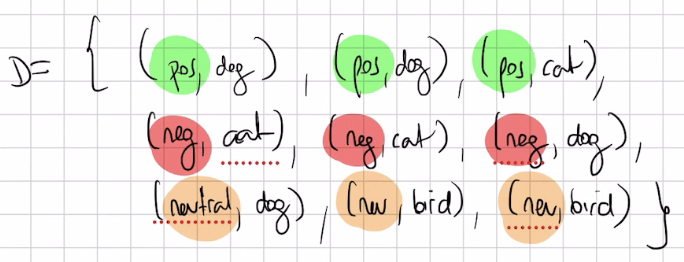 D= { (pos, dog), (pos, dog), (pos, cat),
(neg, cat), (neg, cat), (neg, dog),
(neutral, dog), (neu, bird), (neu, bird) }